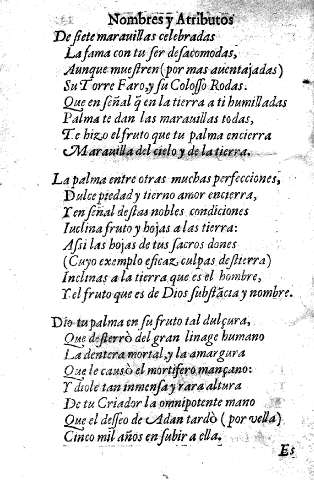 Nombres y Atributos
De siete marauillas celebradas
La fama con tu ser desacomodas,
Aunque muestren (por mas auentajadas)
Su Torre Faro, y su Colosso Rodas.
Que en señal q̃ en la tierra a ti humilladas
Palma te dan las marauillas todas,
Te hizo el fruto que tu palma encierra
Marauilla del cielo y de la tierra.
La palma entre otras muchas perfecciones,
Dulce piedad y tierno amor encierra,
Y en señal destas nobles condiciones
Iuclina fruto y hojas a las tierra:
Assi las hojas de tus sacros dones
(Cuyo exemplo eficaz culpas destierra)
Inclinas a la tierra que es el hombre,
Y el fruto que es de Dios substãcia y nombre.
Dio tu palma en su fruto tal dulçura,
Que desterrò del gran linage humano
La dentera mortal, y la amargura
Que le causò el mortifero mançano:
Y diole tan inmensa y rara altura
De tu Criador la omnipotente mano
Que el desseo de Adan tardò (por vella)
Cinco mil años en subir a ella.
Es